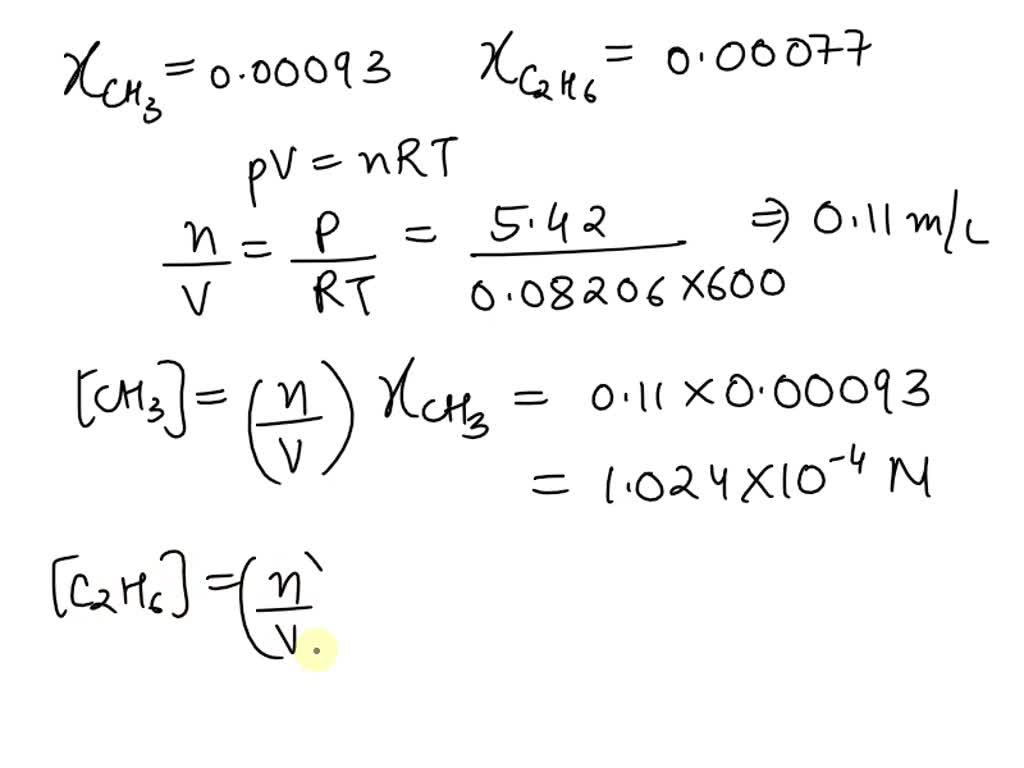 χ_CH3 = 0.00093 χ_C2H6 = 0.00077
pV = nRT
n/V = P/RT = 5.42/(0.08206 × 600) ⇒ 0.11 m/L
[CH3] = (n/V) χ_CH3 = 0.11 × 0.00093
= 1.024 × 10⁻⁴ M
[C2H6] = (n/V